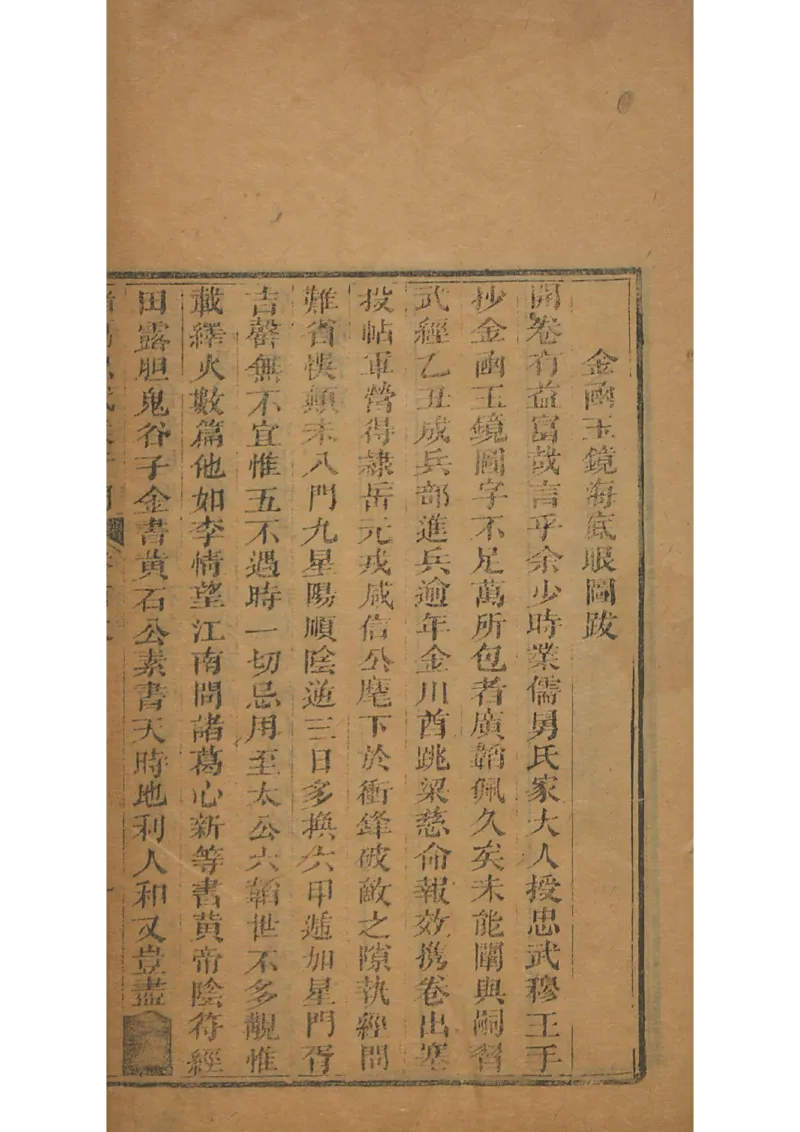 金函玉鏡海底眼圖跋
開卷有益富哉言乎余少時業儒舅氏家大人授忠武穆王手
抄金函玉鏡圖字不足萬所包者廣韜佩久矣未能闡與嗣習
武經乙丑成兵部進兵逾年金川酋跳梁慈命報效携卷出塞
投帖軍營得隷岳元戎咸信公麾下於衝鋒破敵之隙執經問
難省悞顛末八門九星陽順陰逆三日多換六甲遁加星門胥
吉罄無不宜惟五不遇時一切忌用至太公六韜世不多覯惟
載繹火數篇他如李情望江南問諸葛心新等書黃帝陰符經
田露胆鬼谷子金書黃石公素書天時地利人和又豈盡